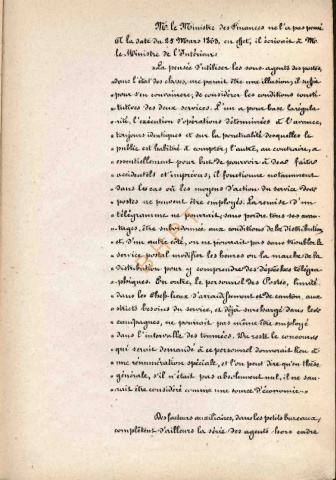 Mr. le Ministre des Finances ne l'a pas pensé
Et la date du 25 Mars 1863, en effet, il écrivait à M.
le Ministre de l'Intérieur:
«La pensée d'utiliser les sous-agents des postes,
dans l'état des choses, me paraît être une illusion; il suffit
pour s'en convaincre, de considérer les conditions consti-
tutives des deux services. L'un a pour base la régula-
rité, l'exécution d'opérations déterminées à l'avance,
toujours identiques et sur la ponctualité desquelles le
public est habitué à compter; l'autre, au contraire, a
essentiellement pour but de pourvoir à des faits
accidentels et imprévus, il fonctionne notamment
dans les cas où les moyens d'action du service des
postes ne peuvent être employés. La remise d'un
télégramme ne saurait, sans perdre tous ses avan-
tages, être subordonnée aux conditions de la distribution
et, d'un autre côté, on ne pourrait pas sans troubler le
service postal modifier les heures ou la marche de la
distribution pour y comprendre des dépêches télégra-
phiques. En outre, le personnel des Postes, limité
dans les chefs-lieux d'arrondissement et de canton, aux
stricts besoins du service, et déjà surchargé dans les
campagnes, ne pourrait pas même être employé
dans l'intervalle des tournées. Du reste le concours
qui serait demandé à ce personnel donnerait lieu à
une rémunération spéciale, et l'on peut dire qu'en thèse
générale, s'il n'était pas absolument nul, il ne sau-
rait être considéré comme une source d'économie.»
Des facteurs auxiliaires, dans les petits bureaux,
complètent d'ailleurs la série des agents hors cadre